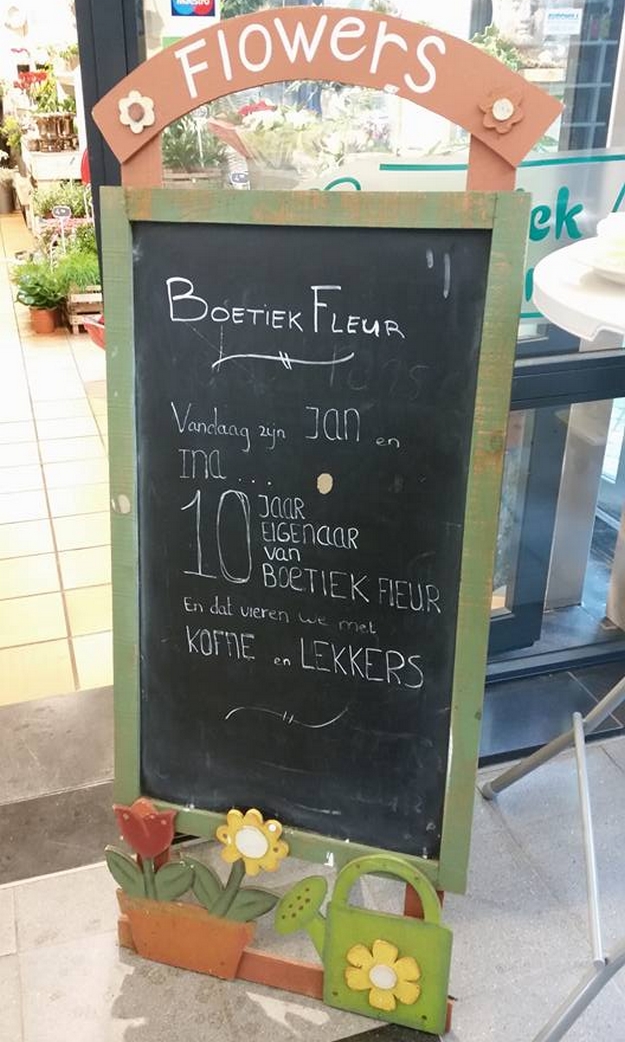 Maestro
Flowers
BOETIEK FLEUR
Vandaag zijn Jan en
Ina...
10 JAAR
EIGENAAR
van
BOETIEK FLEUR
En dat vieren we met
KOFFIE en LEKKERS